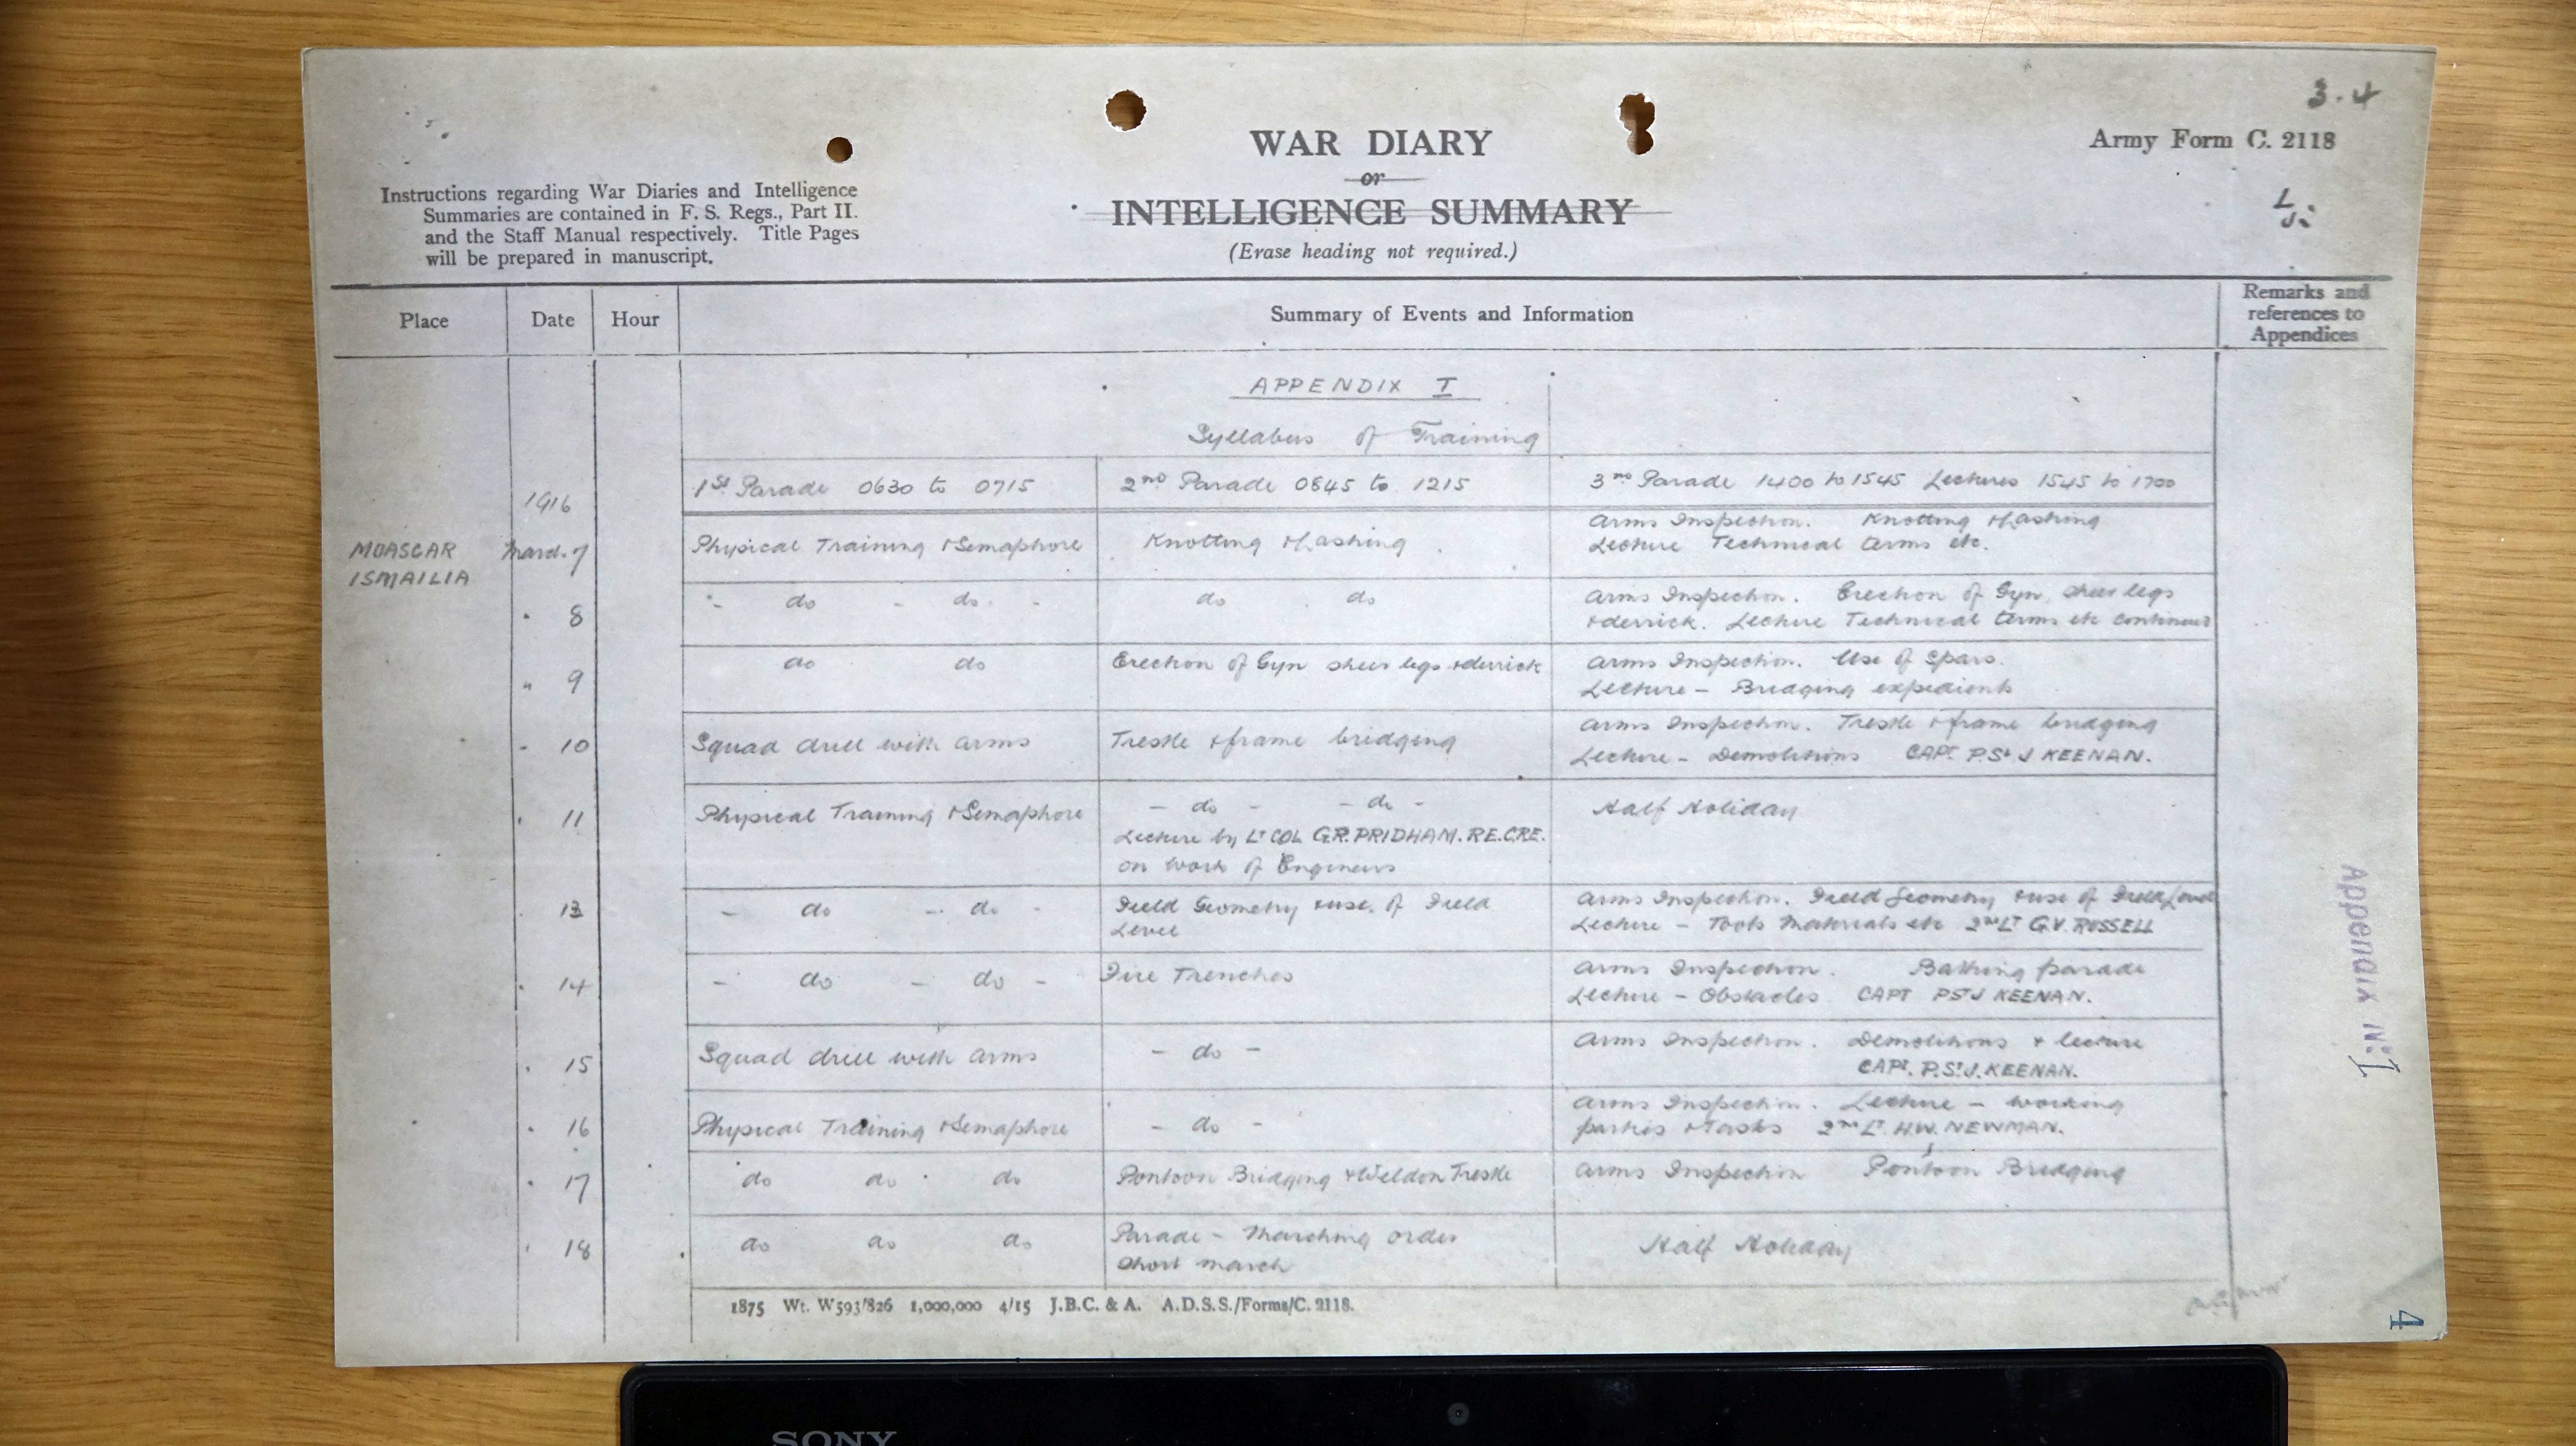 3.4
WAR DIARY
or
INTELLIGENCE SUMMARY
(Erase heading not required.)
Army Form C. 2118
Instructions regarding War Diaries and Intelligence
Summaries are contained in F. S. Regs., Part II.
and the Staff Manual respectively. Title Pages
will be prepared in manuscript.
Place Date Hour Summary of Events and Information
Remarks and
references to
Appendices
APPENDIX I
Syllabus of Training
1916 1st Parade 0630 to 0715 2nd Parade 0845 to 1215 3rd Parade 1400 to 1545 Lectures 1545 to 1700
MOASCAR
ISMAILIA
March 7 Physical Training + Semaphore Knotting + Lashing Arms Inspection. Knotting + Lashing
Lecture Technical terms etc.
" 8 - do - do - do do Arms Inspection. Erection of Gyn, sheer legs
+ derrick. Lecture Technical terms etc continued
" 9 do do Erection of Gyn sheer legs + derrick Arms Inspection. Use of Spars.
Lecture - Bridging expedients
" 10 Squad drill with arms Trestle + frame bridging Arms Inspection. Trestle + frame bridging
Lecture - Demolitions CAPT. P. St J KEENAN.
" 11 Physical Training + Semaphore - do - - do - Half Holiday
Lecture by Lt COL G.R. PRIDHAM. RE. CRE.
on work of Engineers
" 13 - do - do - Field Geometry + use of Field
Level
Arms Inspection. Field Geometry + use of Field Level
Lecture - Tools Materials etc 2nd Lt G.V. RUSSELL
" 14 - do - do - Fire Trenches Arms Inspection. Bathing parade
Lecture - Obstacles CAPT P St J KEENAN.
" 15 Squad drill with arms - do - Arms Inspection. Demolitions + lecture
CAPT. P. St. J. KEENAN.
" 16 Physical Training + Semaphore - do - Arms Inspection. Lecture - working
parties + Tasks 2nd Lt. H.W. NEWMAN.
" 17 do do do Pontoon Bridging + Weldon Trestle Arms Inspection Pontoon Bridging
" 18 do do do Parade - Marching order
short march
Half Holiday
Appendix No. 1
1875 Wt. W593/826 1,000,000 4/15 J.B.C. & A. A.D.S.S./Forms/C. 2118.
4
SONY